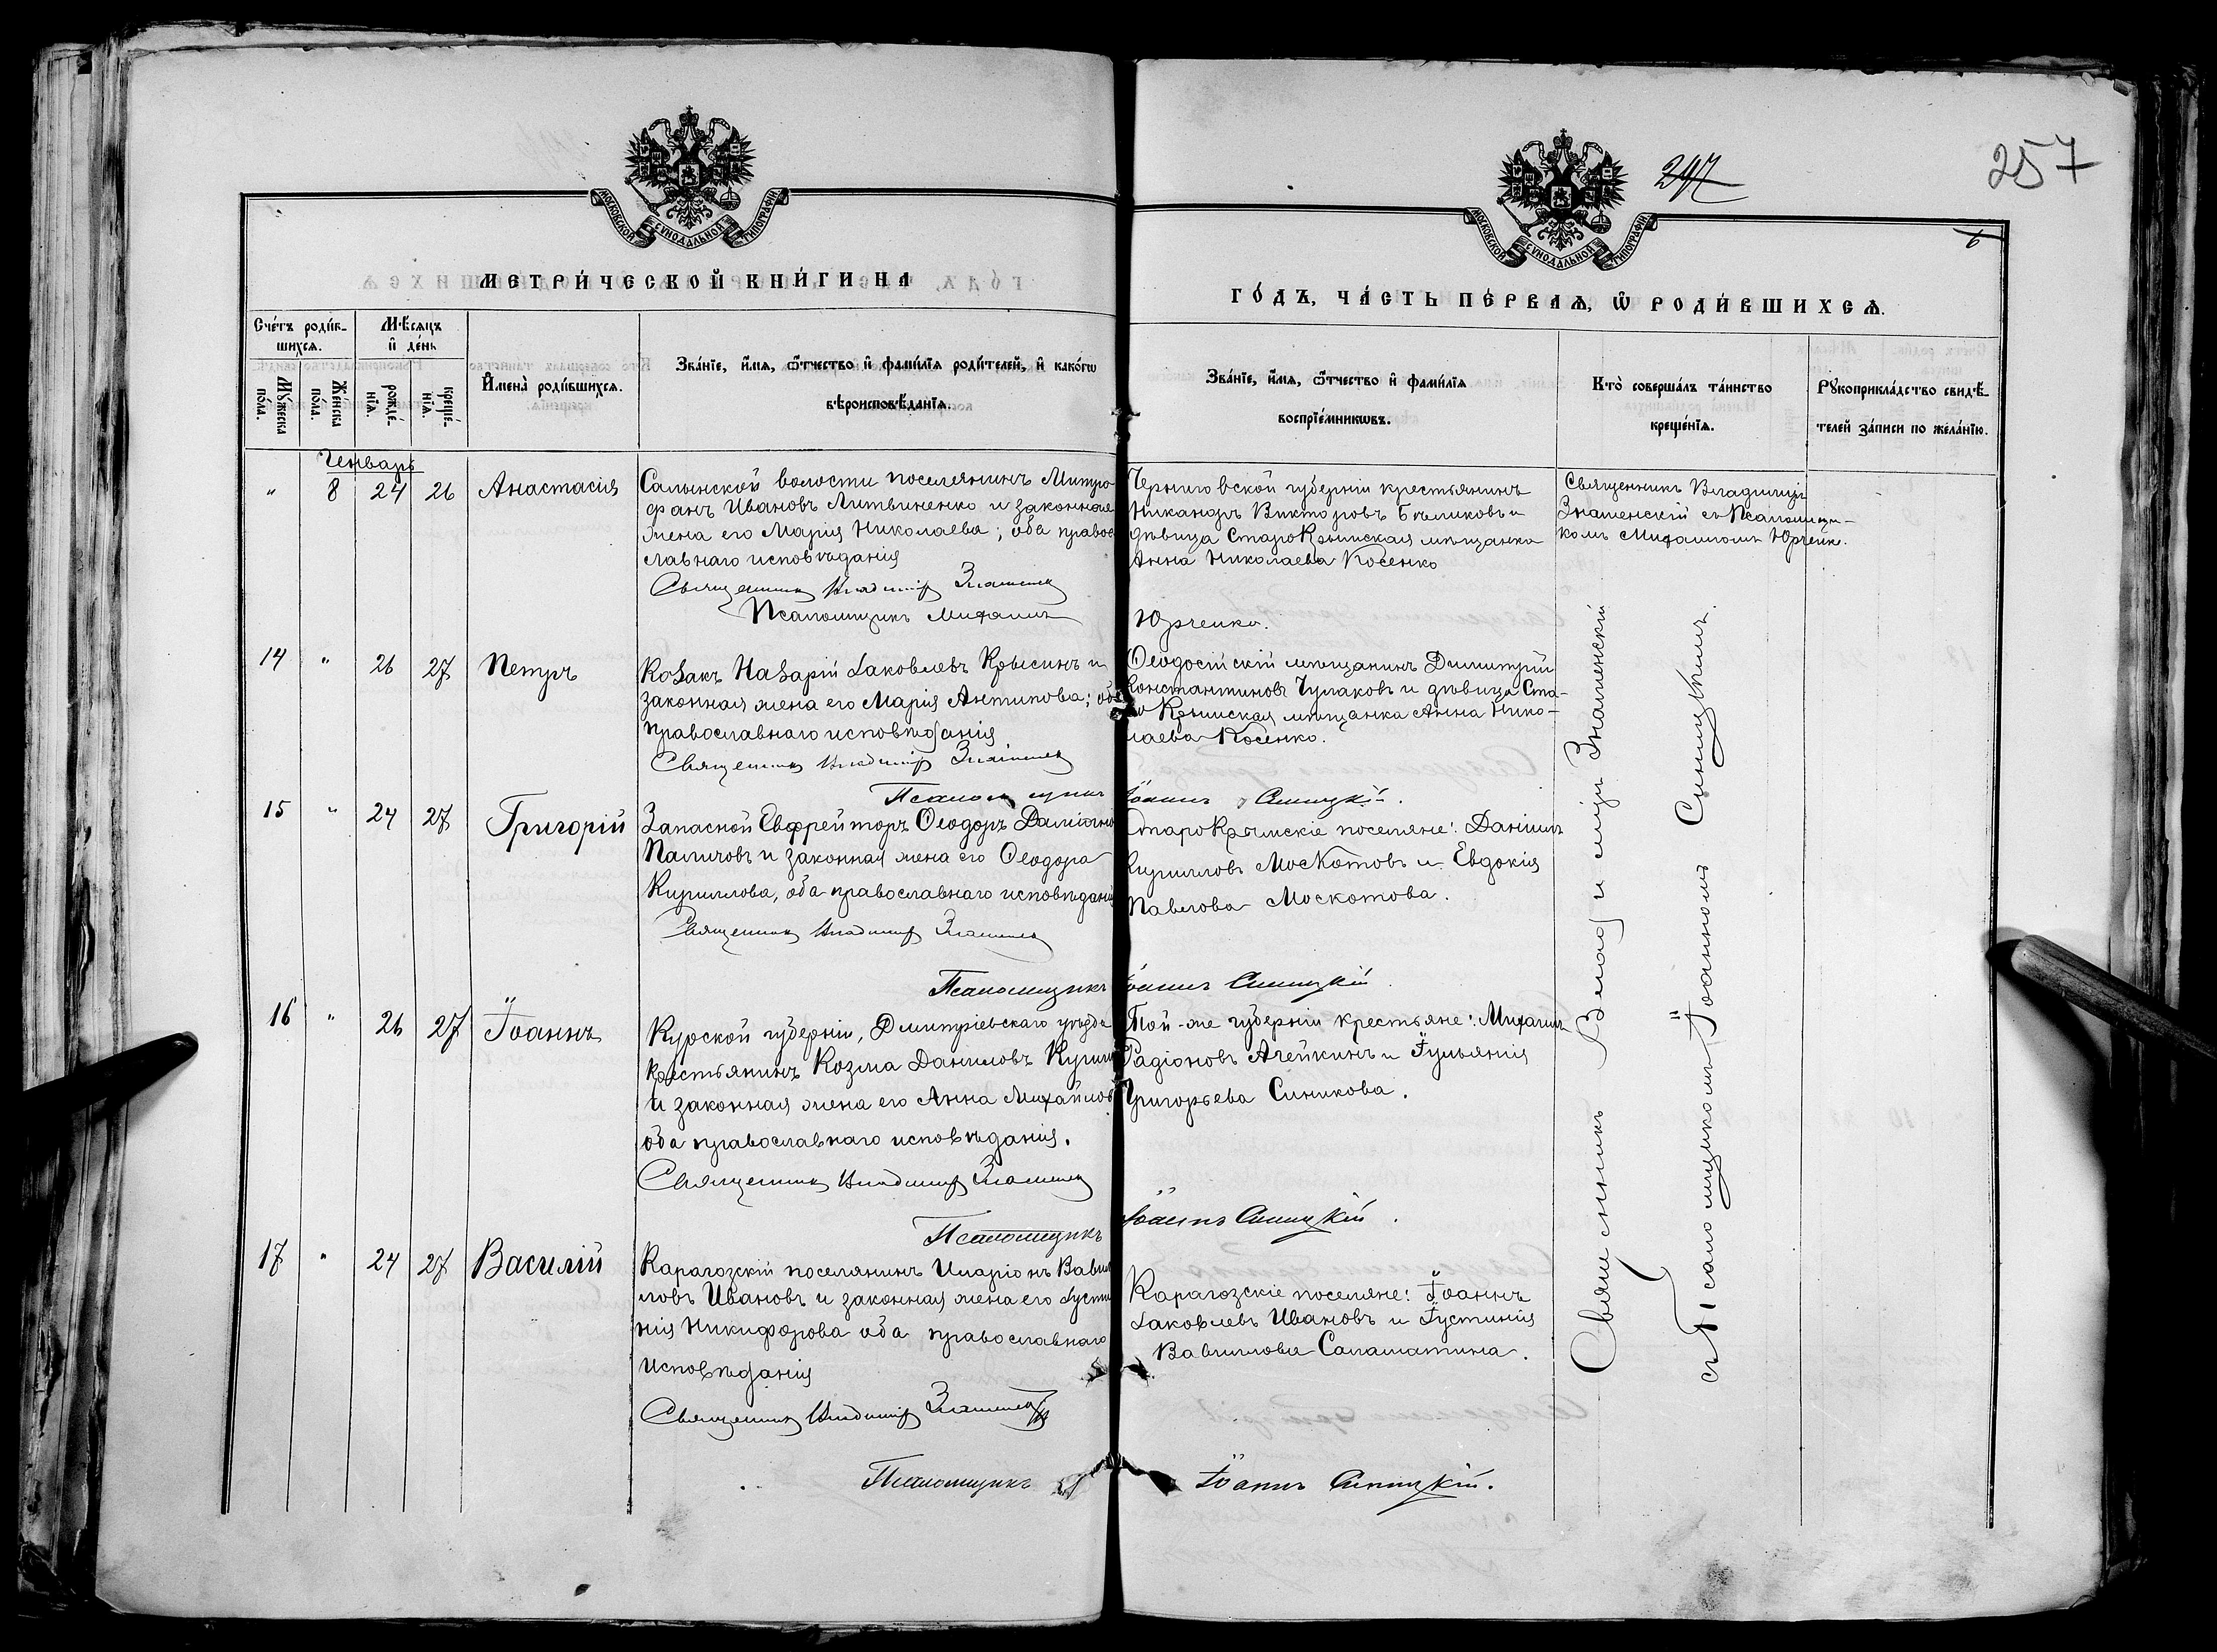 МОСКОВСКОЙ СѴНОДАЛЬНОЙ ТИПОГРАФІИ
МЕТРИ́ЧЕСКОЙ КНИ́ГИ НА
Сче́тъ роди́вшихсѧ.
Мѣ́сѧцъ и҆ де́нь
Мꙋ́жеска по́ла.
Же́нска по́ла.
рожде́нїѧ.
креще́нїѧ.
И҆мена̀ роди́вшихсѧ.
Зва́нїе, и҆́мѧ, ѻ҆́тчество и҆ фами́лїѧ роди́телей, и҆ како́гѡ
вѣроисповѣ́данїѧ.
Генварь
" 8 24 26 Анастасія
Салынской волости поселянинъ Митро
фанъ Ивановъ Литвиненко и законная
жена его Марія Николаева; оба право
славнаго исповѣданія
Священникъ Владиміръ Знаменск
Псаломщикъ Михаилъ
14 " 26 27 Петръ
Козакъ Назарій Іаковлевъ Крысинъ и
законная жена его Марія Антипова; оба
православнаго исповѣданія
Священникъ Владиміръ Знаменск
Псаломщикъ
15 " 24 27 Григорій
Запасной Евфрейторъ Ѳеодоръ
Паличовъ и законная жена его Ѳеодора
Кириллова, оба православнаго исповѣданія
Священникъ Владиміръ Знаменск
Псаломщикъ
16 " 26 27 Іоаннъ
Курской губерніи, Дмитріевскаго уѣзда
крестьянинъ Козма Даниловъ
и законная жена его Анна Михайлов
оба православнаго исповѣданія.
Священникъ Владиміръ Знаменск
Псаломщикъ
17 " 24 27 Василій
Карагозскій поселянинъ Иларіонъ Вави
ловъ Ивановъ и законная жена его Іусти
нія Никифорова оба православнаго
исповѣданія
Священникъ Владиміръ Знаменск
Псаломщикъ
257
247
6
МОСКОВСКОЙ СѴНОДАЛЬНОЙ ТИПОГРАФІИ
ГО́ДЪ, ЧА́СТЬ ПЕ́РВАѦ, Ѡ҆ РОДИ́ВШИХСѦ.
Зва́нїе, и҆́мѧ, ѻ҆́тчество и҆ фами́лїѧ
воспрїе́мникѡвъ.
Кто̀ соверша́лъ та́инство
креще́нїѧ.
Рꙋкоприкла́дство свидѣ́-
телей за́писи по жела́нїю.
Черниговской губерніи крестьянинъ
Никаноръ Викторовъ Бѣликовъ и
дѣвица СтароКрымская мѣщанка
Анна Николаева Косенко
Юрченко.
Священникъ Владиміръ
Знаменскій съ Псаломщи-
комъ Михаиломъ Юрченк.
Ѳеодосійскій мѣщанинъ Димитрій
Константиновъ Чулаковъ и дѣвица Ста-
ро Крымская мѣщанка Анна Нико-
лаева Косенко.
Іоаннъ Синицкій.
СтароКрымскіе поселяне: Даніилъ
Кирилловъ Москотовъ и Евдокія
Павлова Москотова.
Іоаннъ Синицкій.
Той-же губерніи крестьяне: Михаилъ
Радіоновъ Агейкинъ и Іуліянія
Григорьева Синикова.
Іоаннъ Синицкій.
Карагозскіе поселяне: Іоаннъ
Іаковлевъ Ивановъ и Іустинія
Вавилова Саламатина.
Іоаннъ Синицкій.
Священникъ Владиміръ Знаменскій
съ Псаломщикомъ Іоанномъ Синицкимъ.